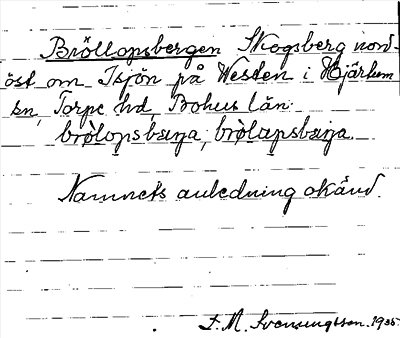 Bröllopsbergen Skogsberg nord-
öst om Isjön på Hesten i Hjärtum
sn, Torpe hd, Bohus län.
bròlopsbæŋa, bròlapsbæŋa.
Namnets anledning okänd.
F. M. 1935.